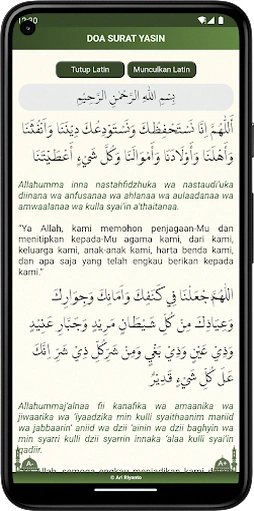 12:30
DOA SURAT YASIN
Tutup Latin
Munculkan Latin
بِسْمِ اللهِ الرَّحْمٰنِ الرَّحِيْمِ
اَللّٰهُمَّ اِنَّا نَسْتَحْفِظُكَ وَنَسْتَوْدِعُكَ دِيْنَنَا وَاَنْفُسَنَا
وَاَهْلَنَا وَاَوْلَادَنَا وَاَمْوَالَنَا وَكُلَّ شَيْءٍ اَعْطَيْتَنَا
Allahumma inna nastahfidzhuka wa nastaudi'uka
diinana wa anfusanaa wa ahlanaa wa aulaadanaa wa
amwaalanaa wa kulla syai'in a'thaitanaa.
"Ya Allah, kami memohon penjagaan-Mu dan
menitipkan kepada-Mu agama kami, dari kami,
keluarga kami, anak-anak kami, harta benda kami,
dan apa saja yang telah engkau berikan kepada
kami."
اَللّٰهُمَّ اجْعَلْنَا فِيْ كَنَفِكَ وَاَمَانِكَ وَجِوَارِكَ
وَعِيَاذِكَ مِنْ كُلِّ شَيْطَانٍ مَرِيْدٍ وَجَبَّارٍ عَنِيْدٍ
وَذِيْ عَيْنٍ وَذِيْ بَغْيٍ وَمِنْ شَرِّ كُلِّ ذِيْ شَرٍّ اِنَّكَ
عَلَى كُلِّ شَيْءٍ قَدِيْرٌ
Allahummaj'alnaa fii kanafika wa amaanika wa
jiwaarika wa 'iyaadzika min kulli syaithaanim mariid
wa jabbaarin' aniid wa dzii 'ainin wa dzii baghyin wa
min syarri kulli dzii syarrin innaka 'alaa kulli syai'in
qadiir.
semoga engkau menjadikan kami
© Ari Riyanto